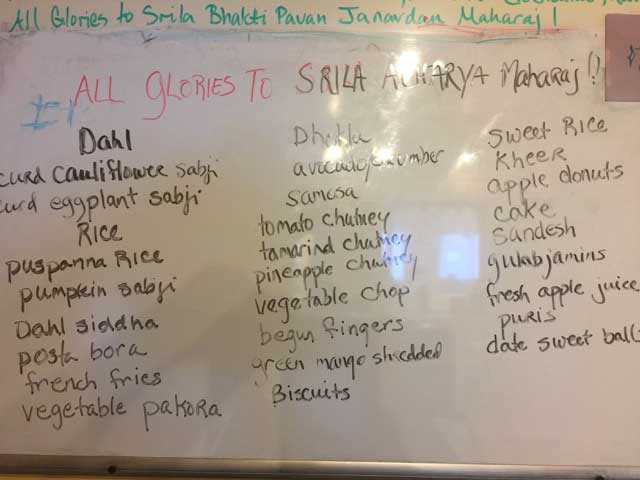 All Glories to Srila Bhakti Pavan Janardan Maharaj!
ALL GLORIES TO SRILA ACHARYA Maharaj!!
Dahl
curd cauliflower sabji
curd eggplant sabji
Rice
puspanna Rice
pumpkin sabji
Dahl siddha
posta bora
french fries
vegetable pakora
Dhokla
avocado/cucumber
samosa
tomato chutney
tamarind chutney
pineapple chutney
vegetable chop
begun fingers
green mango shredded
Biscuits
sweet Rice
Kheer
apple donuts
cake
Sandesh
gulabjamins
fresh apple juice
puris
date sweet ball